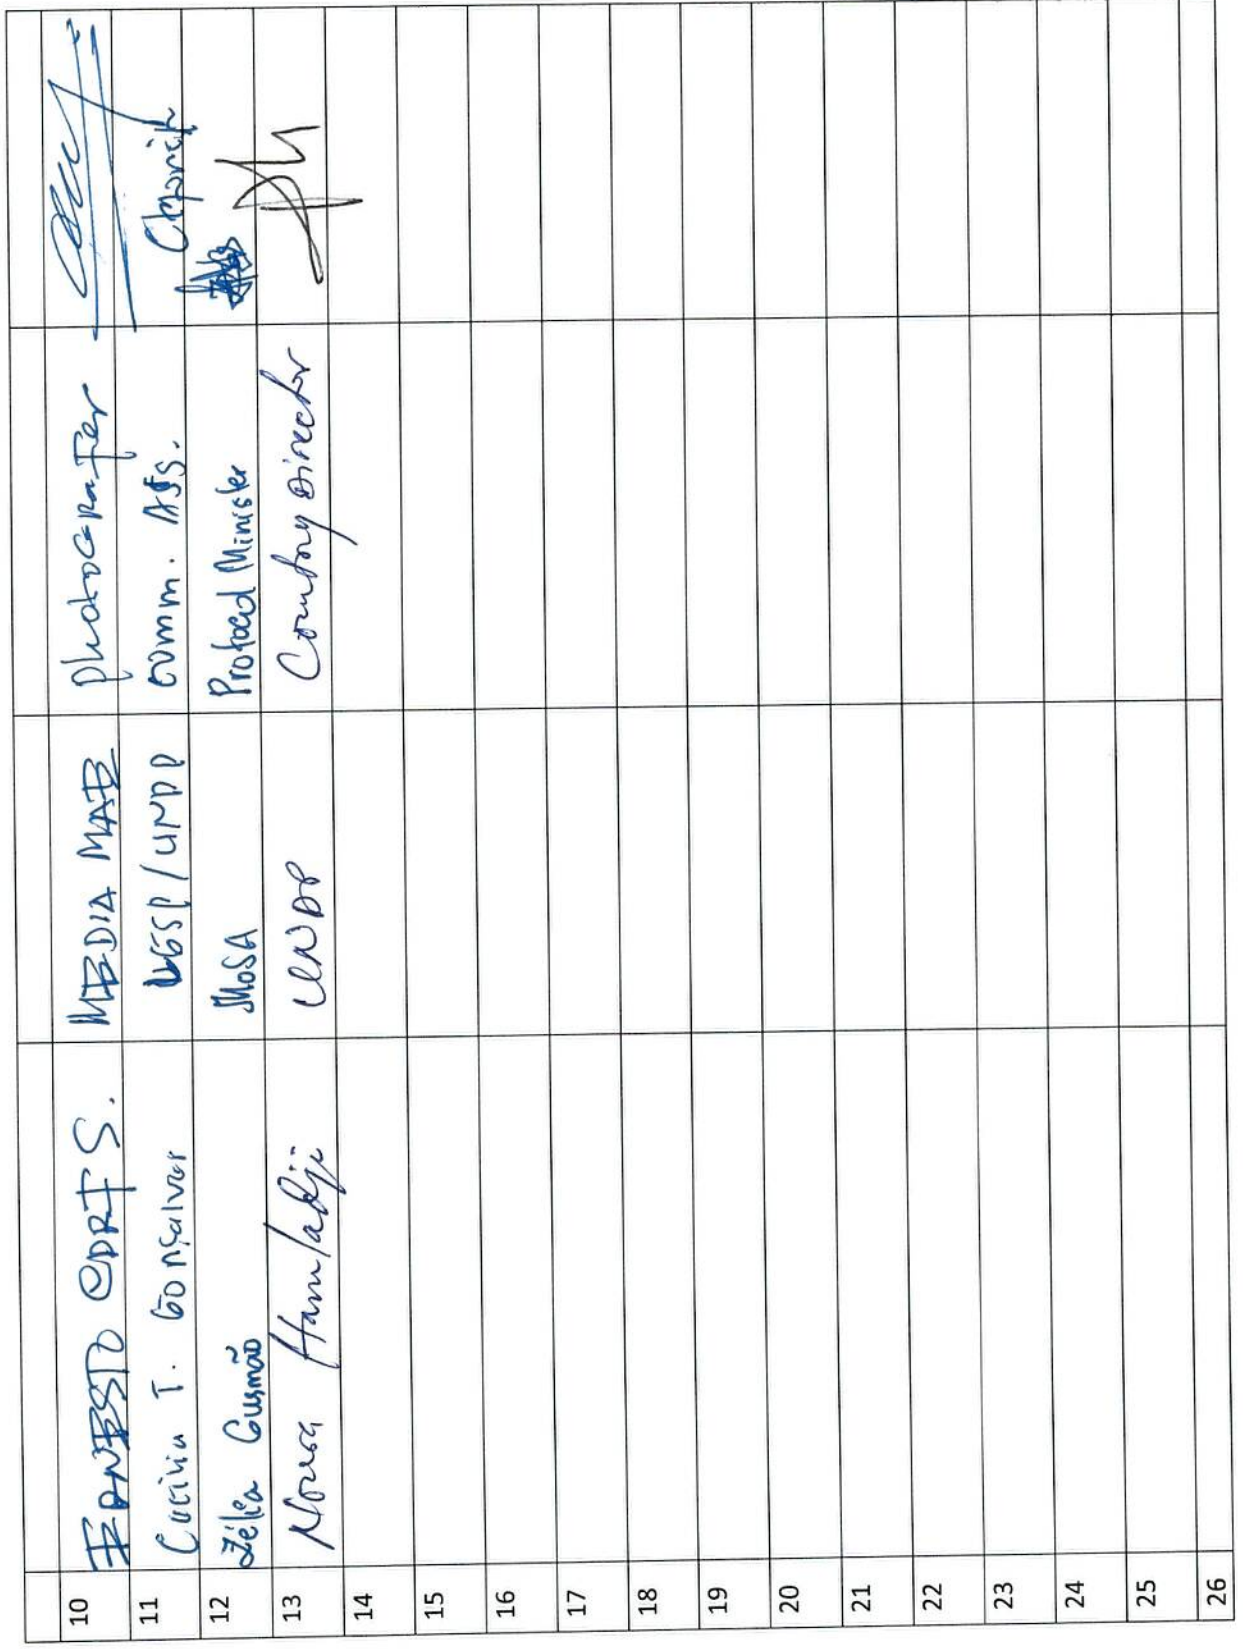 10 ERNESTO CORTE S. MEDIA MAE photoGRaFer
11 T. Gonçalves LGSP/UNDP comm. Ass.
12 Zélia Gusmão MoSA Protocol Minister
13 Noura Hamladji UNDP Country Director
14
15
16
17
18
19
20
21
22
23
24
25
26